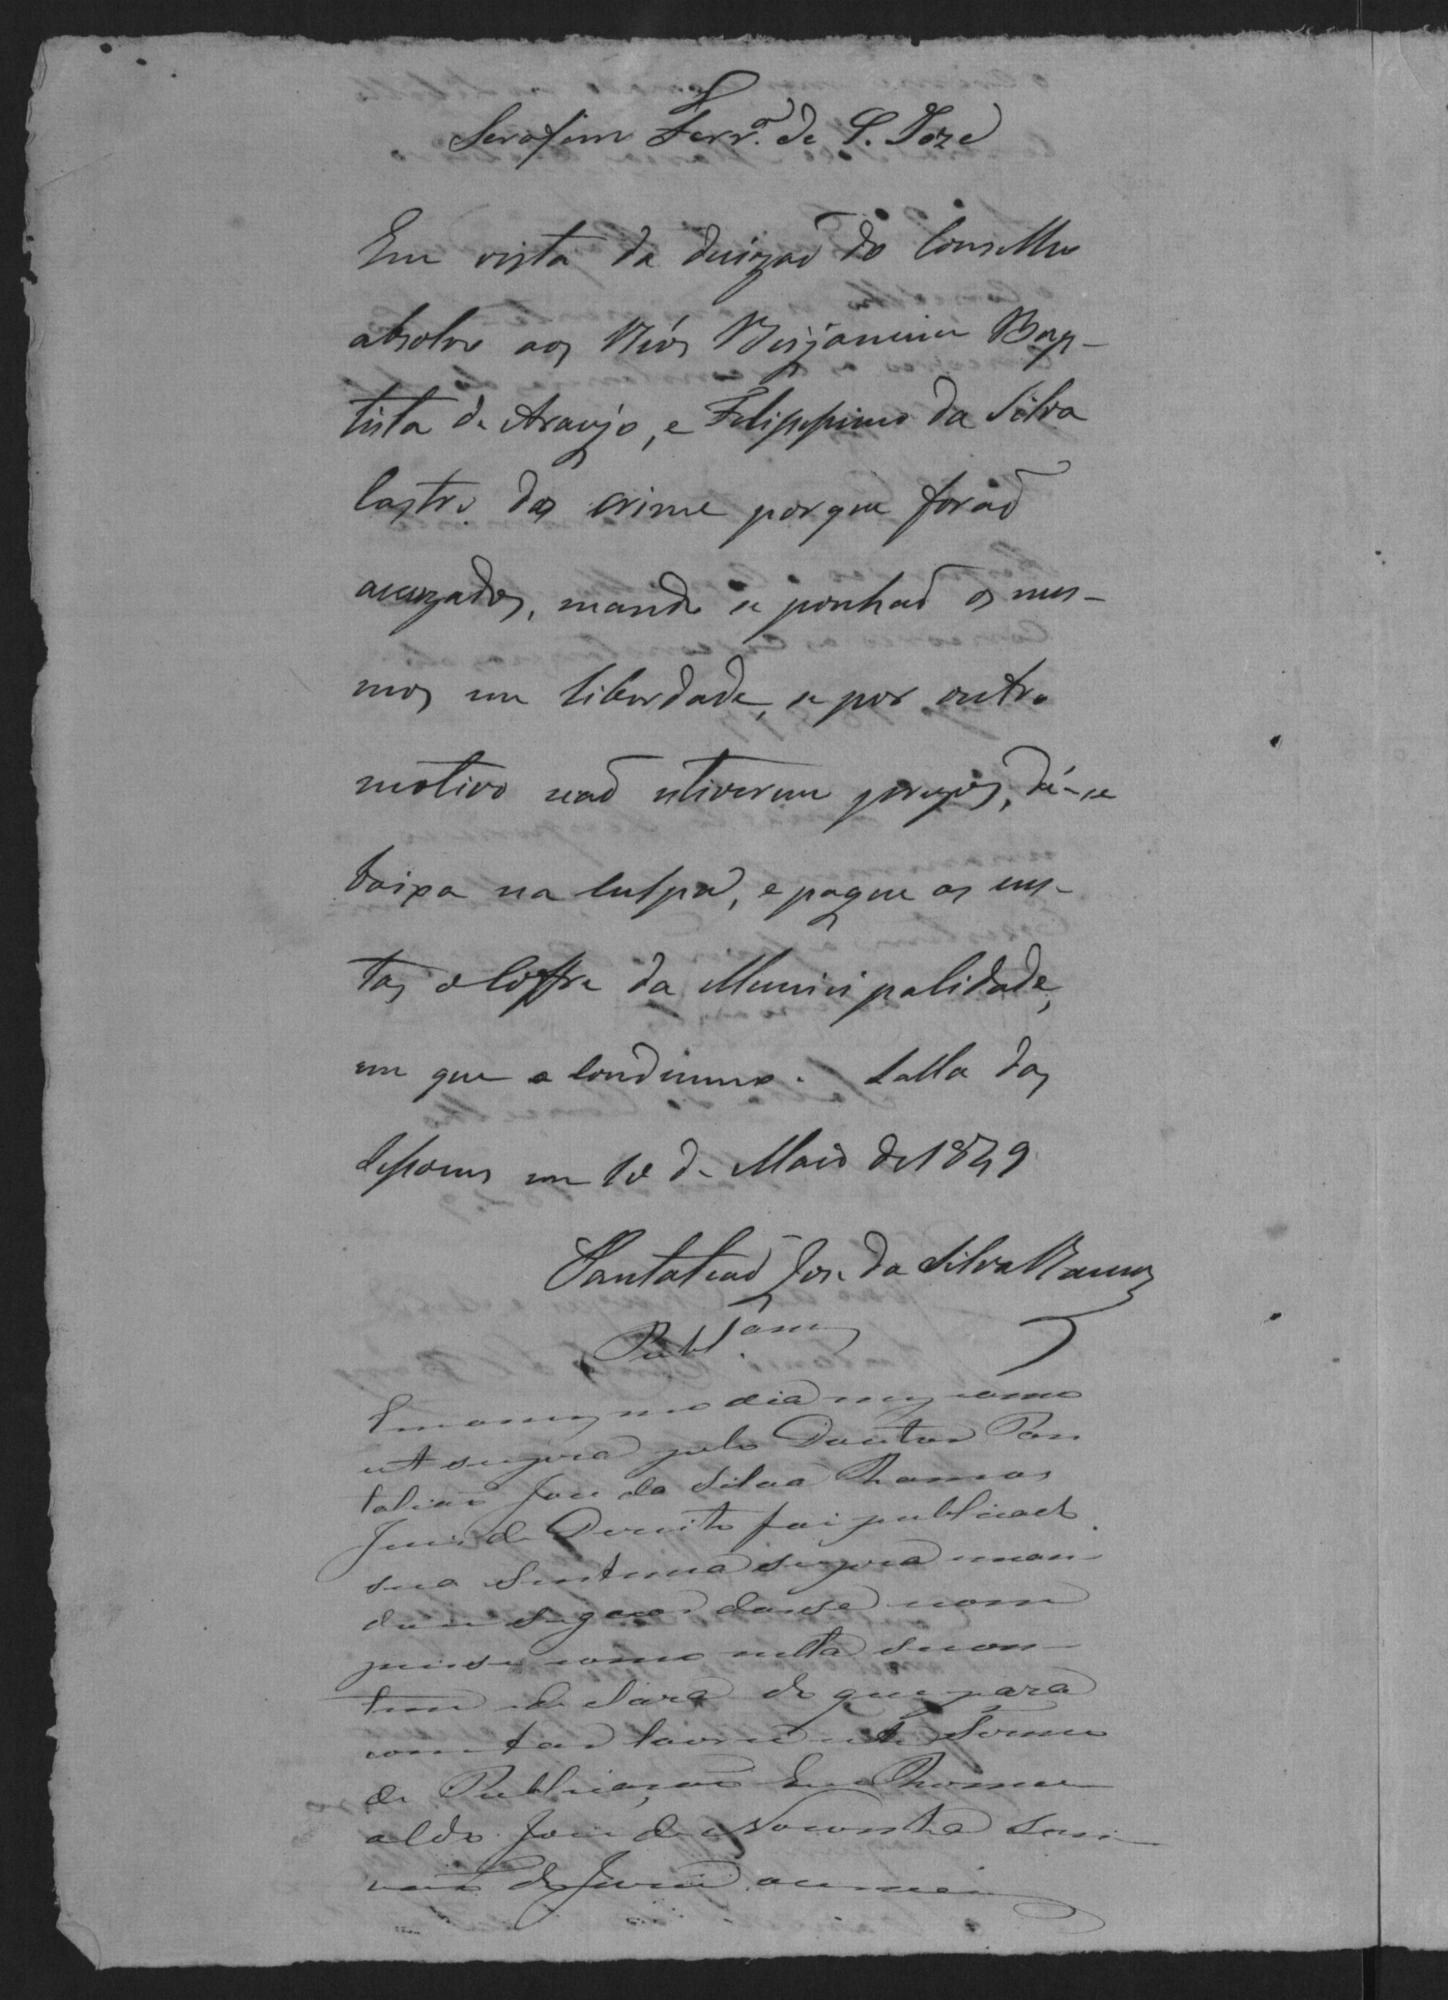 Serafim Ferr.ª de S. Joze
Em vista da decizaõ do Conselho
absolvo aos Réos Benjamim Bap-
tista de Araujo, e Filippino da Silva
Castro do crime porque foraõ
accuzados, mando se ponhaõ os mes-
mos em liberdade, se por outro
motivo naõ estiverem prezos, dê-se
baixa na culpa, e pague as cus-
tas o Coffre da Municipalidade,
em que o condemno. Salla das
Sessoens em 10 de Maio de 1849
Pantaleaõ Jose da Silva Ramos
Publ.am
E no mesmo dia mez e anno
ut supra pelo Doutor Pan
taleaõ Jose da Silva Ramos
Juis de Direito foi publicada
sua Sentença supra man
dou se guardasse e com
prisse como nella se con
tem e declara do que para
constar lavrei este Termo
de Publicaçaõ Eu Romu
aldo Jose de Noronha Escri
vaõ do Jurÿ o escrevi